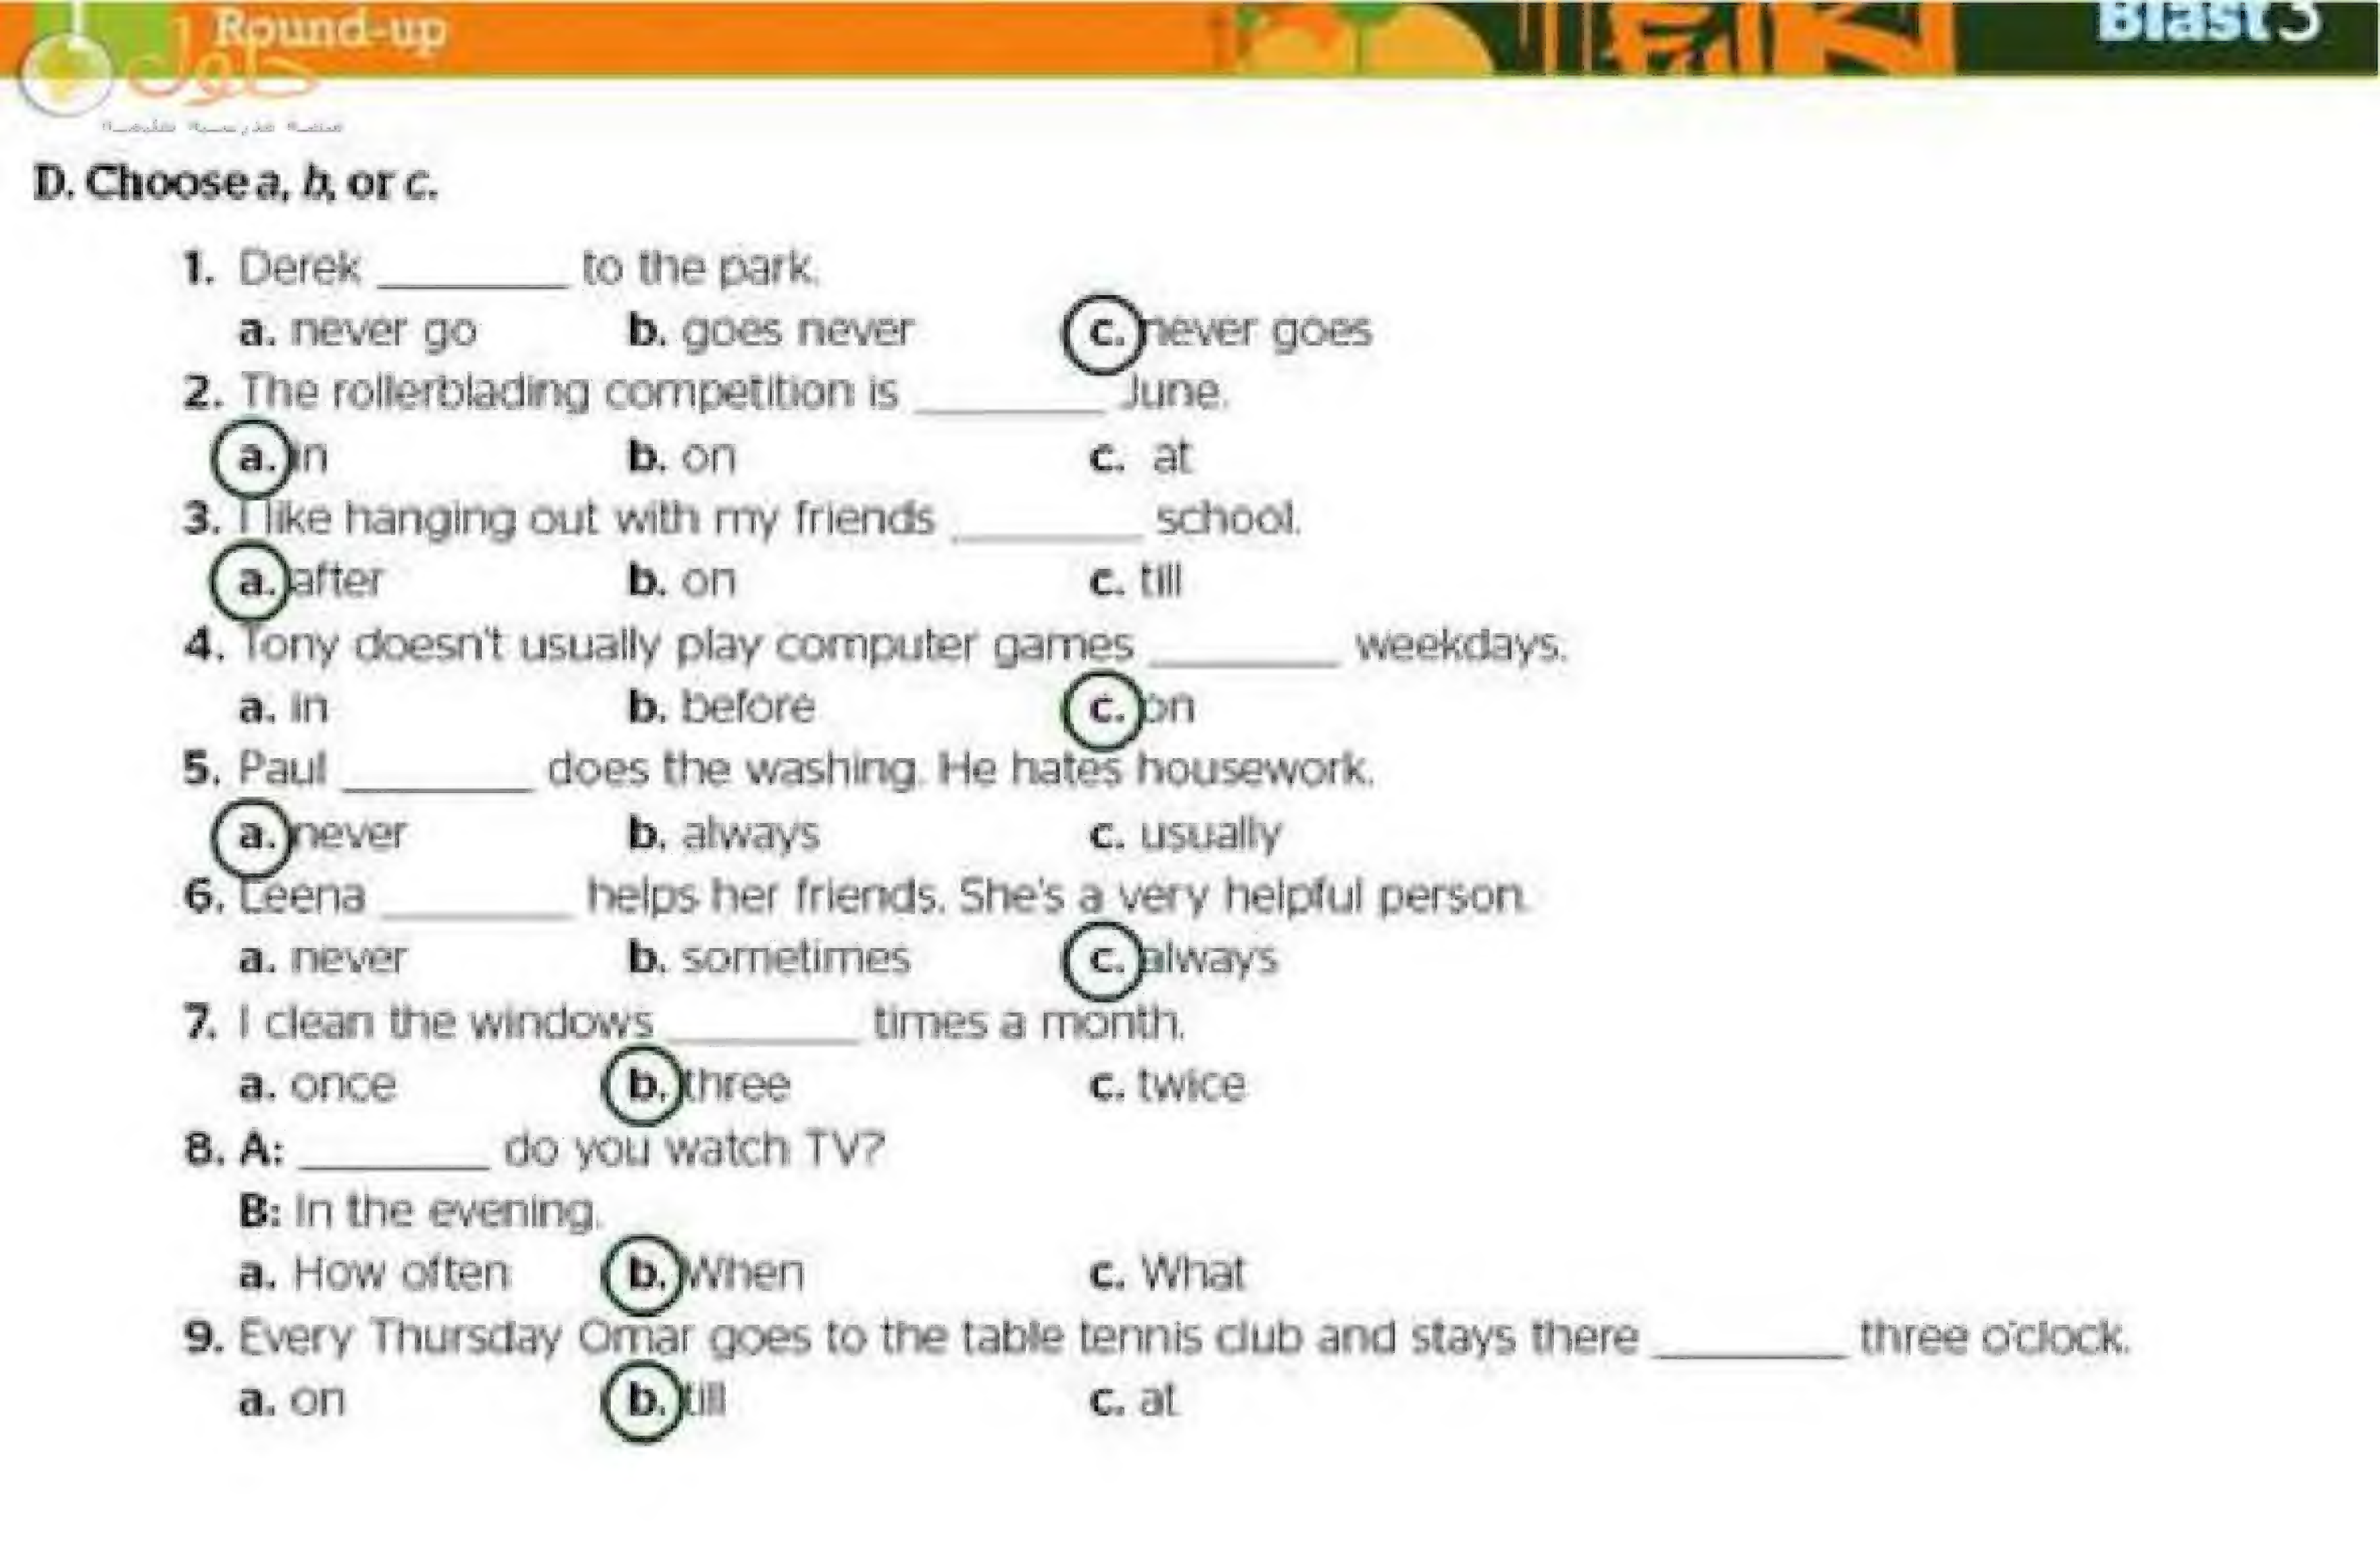 Round-up
Blast 3
حلول
D. Choose a, b, or c.
1. Derek ________ to the park.
a. never go b. goes never c. never goes
2. The rollerblading competition is ________ June.
a. in b. on c. at
3. I like hanging out with my friends ________ school.
a. after b. on c. till
4. Tony doesn't usually play computer games ________ weekdays.
a. in b. before c. on
5. Paul ________ does the washing. He hates housework.
a. never b. always c. usually
6. Leena ________ helps her friends. She's a very helpful person.
a. never b. sometimes c. always
7. I clean the windows ________ times a month.
a. once b. three c. twice
8. A: ________ do you watch TV?
B: In the evening.
a. How often b. When c. What
9. Every Thursday Omar goes to the table tennis club and stays there ________ three o'clock.
a. on b. till c. at